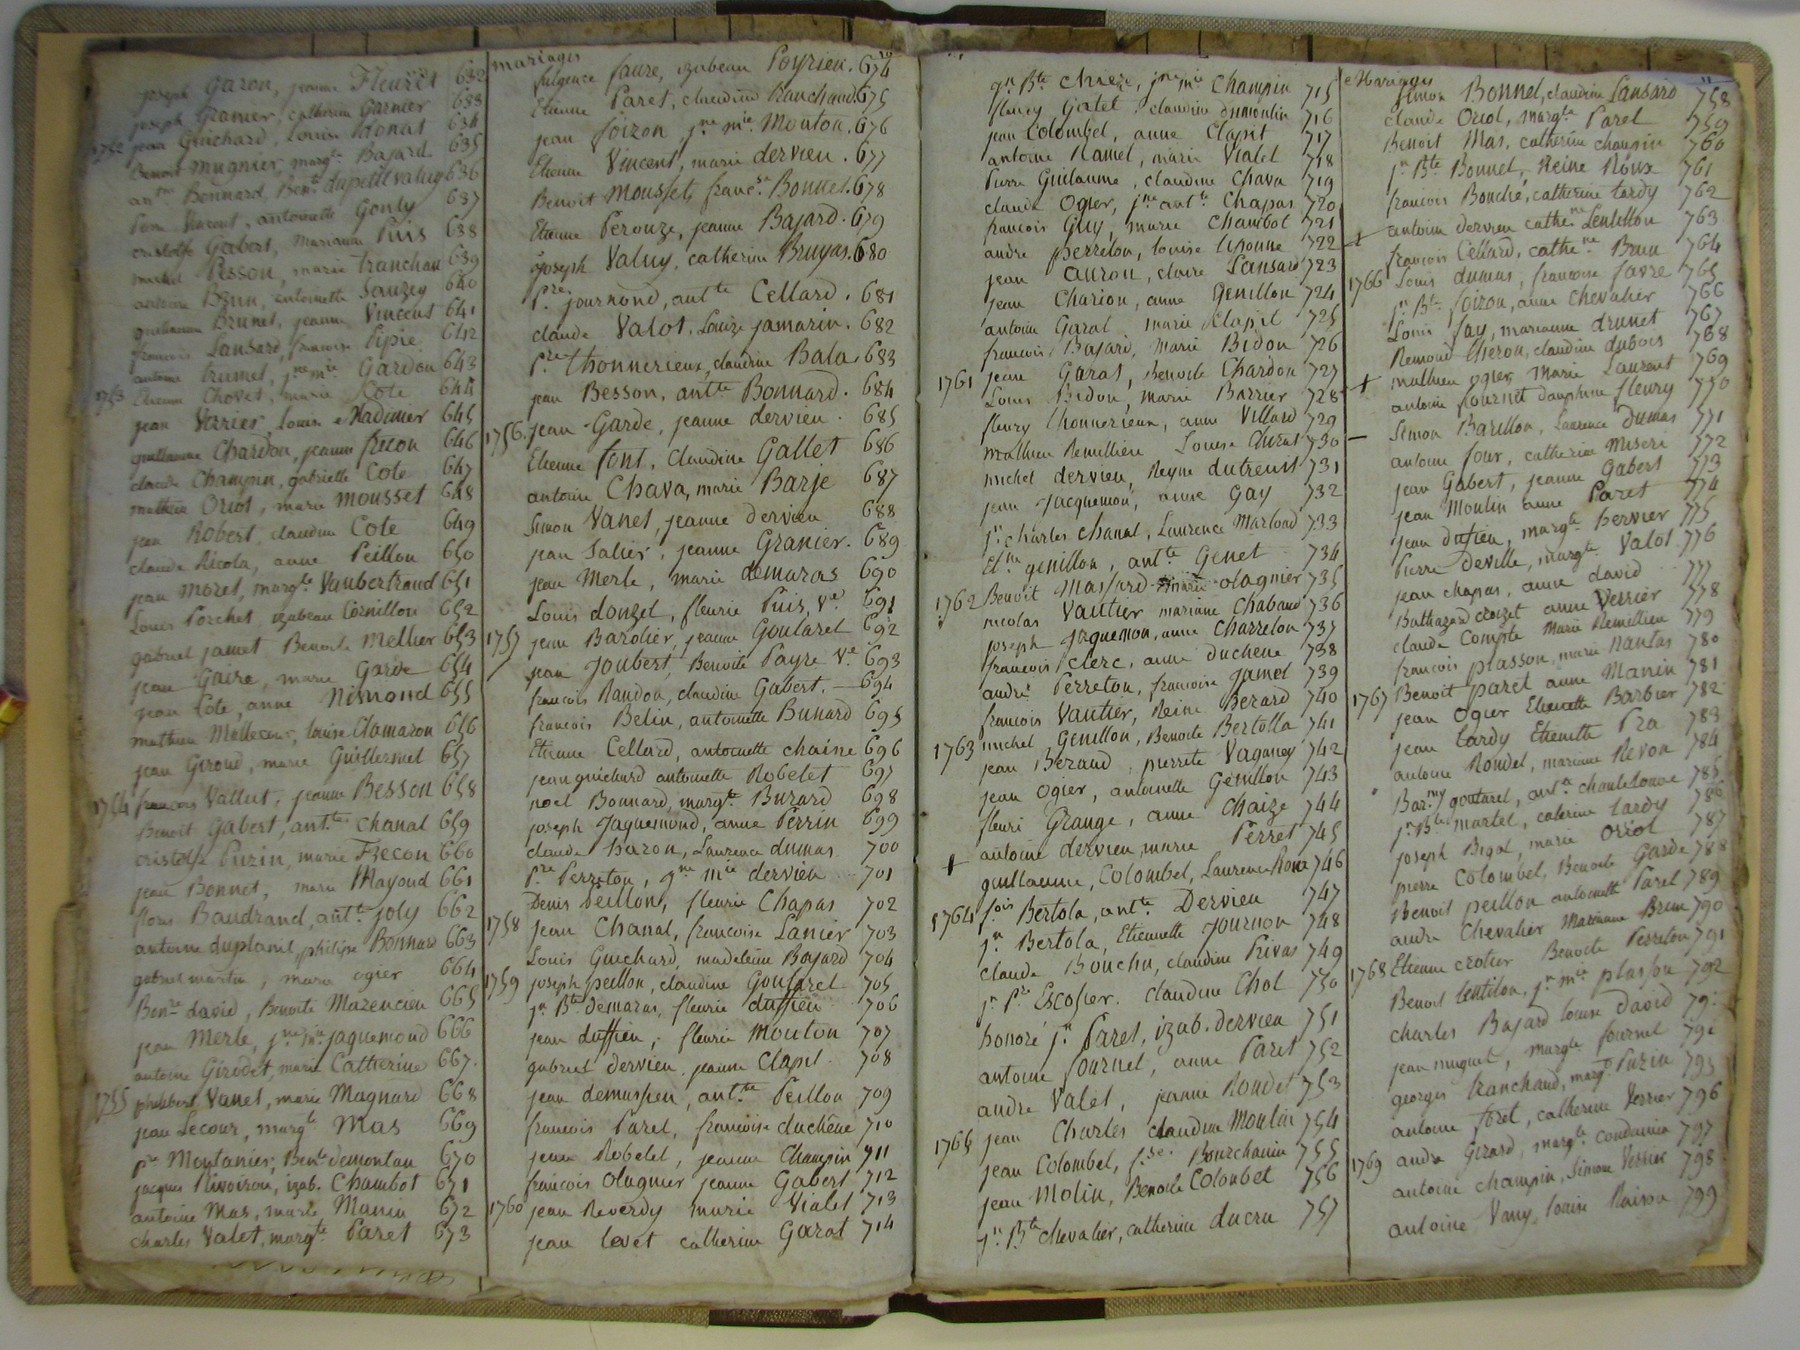 joseph Garon, jeanne Fleuret 632
joseph Granier, catherine Garnier 633
1752 jean Guichard, Louise Donat 634
Benoit Mugnier, margte Bajard 635
antne Bonnard, Bente dupetit valuy 636
Pierre Vincent, antoinette Gonly 637
cristofle Gabert, Marianne Puis 638
michel Pesson, marie Tranchan 639
antoine Brun, antoinette Sauzey 640
guillaume Brunet, jeanne Vincent 641
francois Lansard, francoise Pipie 642
antoine trumel, jne mie Gardon 643
1753 Etienne Chovet, marie Cote 644
jean Varier, Louise Madinier 645
guillaume Chardon, jeanne frecon 646
claude Champin, gabrielle Cote 647
mathieu Oriol, marie Mousset 648
jean Robert, claudine Cote 649
claude Nicola, anne Peillon 650
jean Moret, margte Vaubertrand 651
Louis Porchet, izabeau Cornillon 652
gabriel jamet Benoite Mellier 653
jean Gaire, marie Garde 654
jean Cote, anne Nismond 655
mathieu, louise Clamaron 656
jean Giroud, marie Guillermet 657
1754 francois Vallut, jeanne Besson 658
Benoit Gabert, antte Chanal 659
cristofle Puzin, marie Frecon 660
jean Bonnet, marie Mayoud 661
floris Baudrand, antte joly 662
antoine duplanil, philipe Bonnard 663
gabriel martin, marie ogier 664
Bonre david, Benoite Mazencieu 665
jean Merle, jne mie jaquemond 666
antoine Girodet, marie Catherine 667
1755 philibert Vanet, marie Magnard 668
jean Lecour, margte Mas 669
Pre Montanier, Bente demontau 670
jacques Rivoiron, izab. Chambot 671
antoine Mas, marie Manin 672
charles Valet, margte Paret 673
mariages
fulgence faure, izabeau Poyrieu. 674
Etienne Paret, claudine Ranchaud 675
jean foizon, jne mie Mouton. 676
Etienne Vincent, marie dervieu. 677
Benoit Mousset, francse Bonnet. 678
Etienne Perouze, jeanne Bajard. 679
joseph Valuy, catherine Bruyas. 680
Pre journond, antte Cellard. 681
claude Valot, Louize jamarin. 682
Pre thonnerieux, claudine Bala 683
jean Besson, antte Bonnard. 684
1756. jean Garde, jeanne dervieu. 685
Etienne font, Claudine Gallet 686
antoine Chava, marie Barje 687
Simon Vanet, jeanne dervieu 688
jean Salier, jeanne Granier. 689
jean Merle, marie demaras 690
Louis donzel, fleurie Puis, ve 691
1757 jean Barolier, jeanne Goutaret 692
jean Joubert, Benoite Payre ve. 693
francois Randon, claudine Gabert. 694
francois Belin, antoinette Bunard 695
Etienne Cellard, antoinette chaine 696
jean guichard antoinette Robelet 697
noel Bonnard, margte. Buzard 698
joseph Jaquemond, anne Perrin 699
claude baron, Laurence dumas 700
Pre Perreton, jne mie dervieu 701
Denis Peillon, fleurie Chapas 702
1758 jean Chanal, francoise Lanier 703
Louis Guichard, madeleine Bajard 704
1759 joseph peillon, claudine Goutaret 705
jn Bte demaras, fleurie dussieu 706
jean dussieu, fleurie Mouton 707
gabriel dervieu, jeanne Clapit 708
jean demussieu, antte Peillon 709
francois Paret, francoise duchêne 710
jean Robelet, jeanne Champin 711
francois Olagnier jeanne Gabert 712
1760 jean Reverdy marie Vialet 713
jean levet catherine Garat 714
jn Bte Chieze, jne mie Champin 715
fleury Galet, claudine dumoulin 716
jean Colombet, anne Clapit 717
antoine Ramel, marie Vialet 718
Pierre Guilaume, claudine Chava 719
claude Ogier, jne antte Chapas 720
francois Guy, marie Chambot 721
andre perreton, louise lisonne 722
jean Auron, claire Lansard 723
jean Charion, anne Genillon 724
antoine Garat marie Clapit 725
francois Bajard, Marie Bidon 726
1761 jean Garat, Benoite Chardon 727
Louis Bidon, marie Barrier 728
fleury thonnerieux, anne Villard 729
mathieu Remillieu Louise Auzat 730
michel dervieu, Reyne dutreuil 731
jean Jacquemond, anne Gay 732
jn charles Chanal, Laurence Marloud 733
Etne genillon, antte Genet 734
1762 Benoit Massard marie olagnier 735
nicolas Vautier mariane Chaband 736
joseph Jaquemon, anne Charreton 737
francois clerc, anne duchene 738
andré Perreton, francoise jamet 739
francois Vautier, Reine Berard 740
1763 michel Genillon, Benoite Bertolla 741
jean Beraud, pierrete Vaganey 742
jean Ogier, antoinette Genillon 743
fleuri Grange, anne Chaize 744
antoine dervieu, marie Perret 745
guillaume, Colombet, Laurence Roux 746
1764 fois Bertola, antte. Dervieu 747
jn Bertola, Etiennette Journon 748
claude Bouchu, claudine Privas 749
jn Pre Escofier. claudine Chol 750
honoré jn Paret, izab. dervieu 751
antoine fournel, anne Paret 752
andre Valet, jeanne Rondet 753
1765 jean Charles claudine Moulin 754
jean Colombet, fse. Bourchanin 755
jean Molin, Benoite Colombet 756
jn Bte chevalier, catherine ducru 757
Mariages
Simon Bonnel, claudine Lansard 758
claude Oriol, margte Paret 759
Benoit Mas, catherine champin 760
jn Bte Bonnel, Reine Roux 761
francois Bouché, catherine tardy 762
antoine dervieu cathne Lentillon 763
francois Cellard, cathne Brun 764
1766 Louis dumas, francoise favre 765
jn Bte foizon, anne chevalier 766
Louis fay, marianne drunet 767
Remond theron, claudine dubois 768
mathieu ogier Marie Laurent 769
antoine fournet dauphine fleury 770
Simon Barillon, Laurence Dumas 771
antoine four, catherine misere 772
jean Gabert, jeanne Gabert 773
jean Moulin anne Paret 774
jean dussieu, margte hervier 775
Pierre Deville, margte Valot 776
jean chapas, anne david 777
Balthazard crozet anne Verrier 778
claude Compte Marie Remillieu 779
francois plasson, marie nantas 780
1767 Benoit paret anne Manin 781
jean Ogier Etiennette Barbier 782
jean tardy Etiennette Pra 783
antoine Rondel, mariane Revon 784
Barmy goutaret, antte chantelouve 785
jn Bte martel, caterine tardy 786
joseph Bigot, marie Oriol 787
pierre Colombet, Benoite Garde 788
Benoit peillon antoinette Paret 789
andre Chevalier Marianne Brun 790
Etienne crotier Benoite Perreton 791
1768 Benoit lentilon, jn mie plasson 792
charles Bajard louise David 79
jean muguet, margte fournel 794
georges Ranchaud, margte Puzin 795
antoine foret, catherine Verrier 796
andre Girard, margte condamin 797
1769 antoine champin, Simone Verrier 798
antoine Vany, louise Raison 799